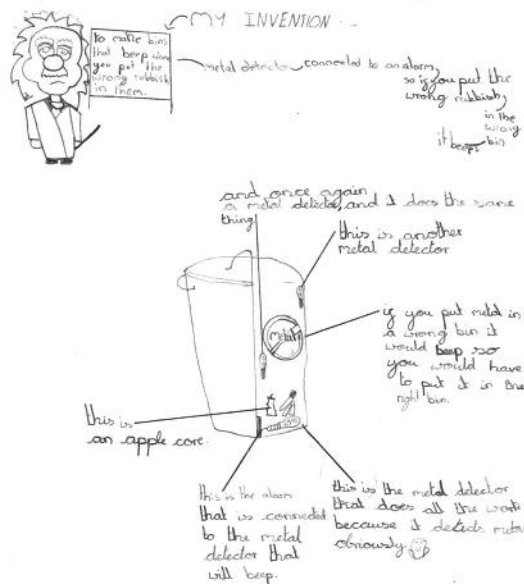 MY INVENTION...
to make bins
that beep when
you put the
wrong rubbish
in them.
metal detector
connected to an alarm,
so if you put the
wrong rubbish,
in the
wrong
bin
it beeps
and once again
a metal detector, and it does the same
thing
this is another
metal detector
metal
if you put metal in
a wrong bin it
would beep so
you would have
to put it in the
right bin.
this is
an apple core.
this is the alarm
that is connected
to the metal
detector that
will beep.
this is the metal detector
that does all the work
because it detects metal
obviously